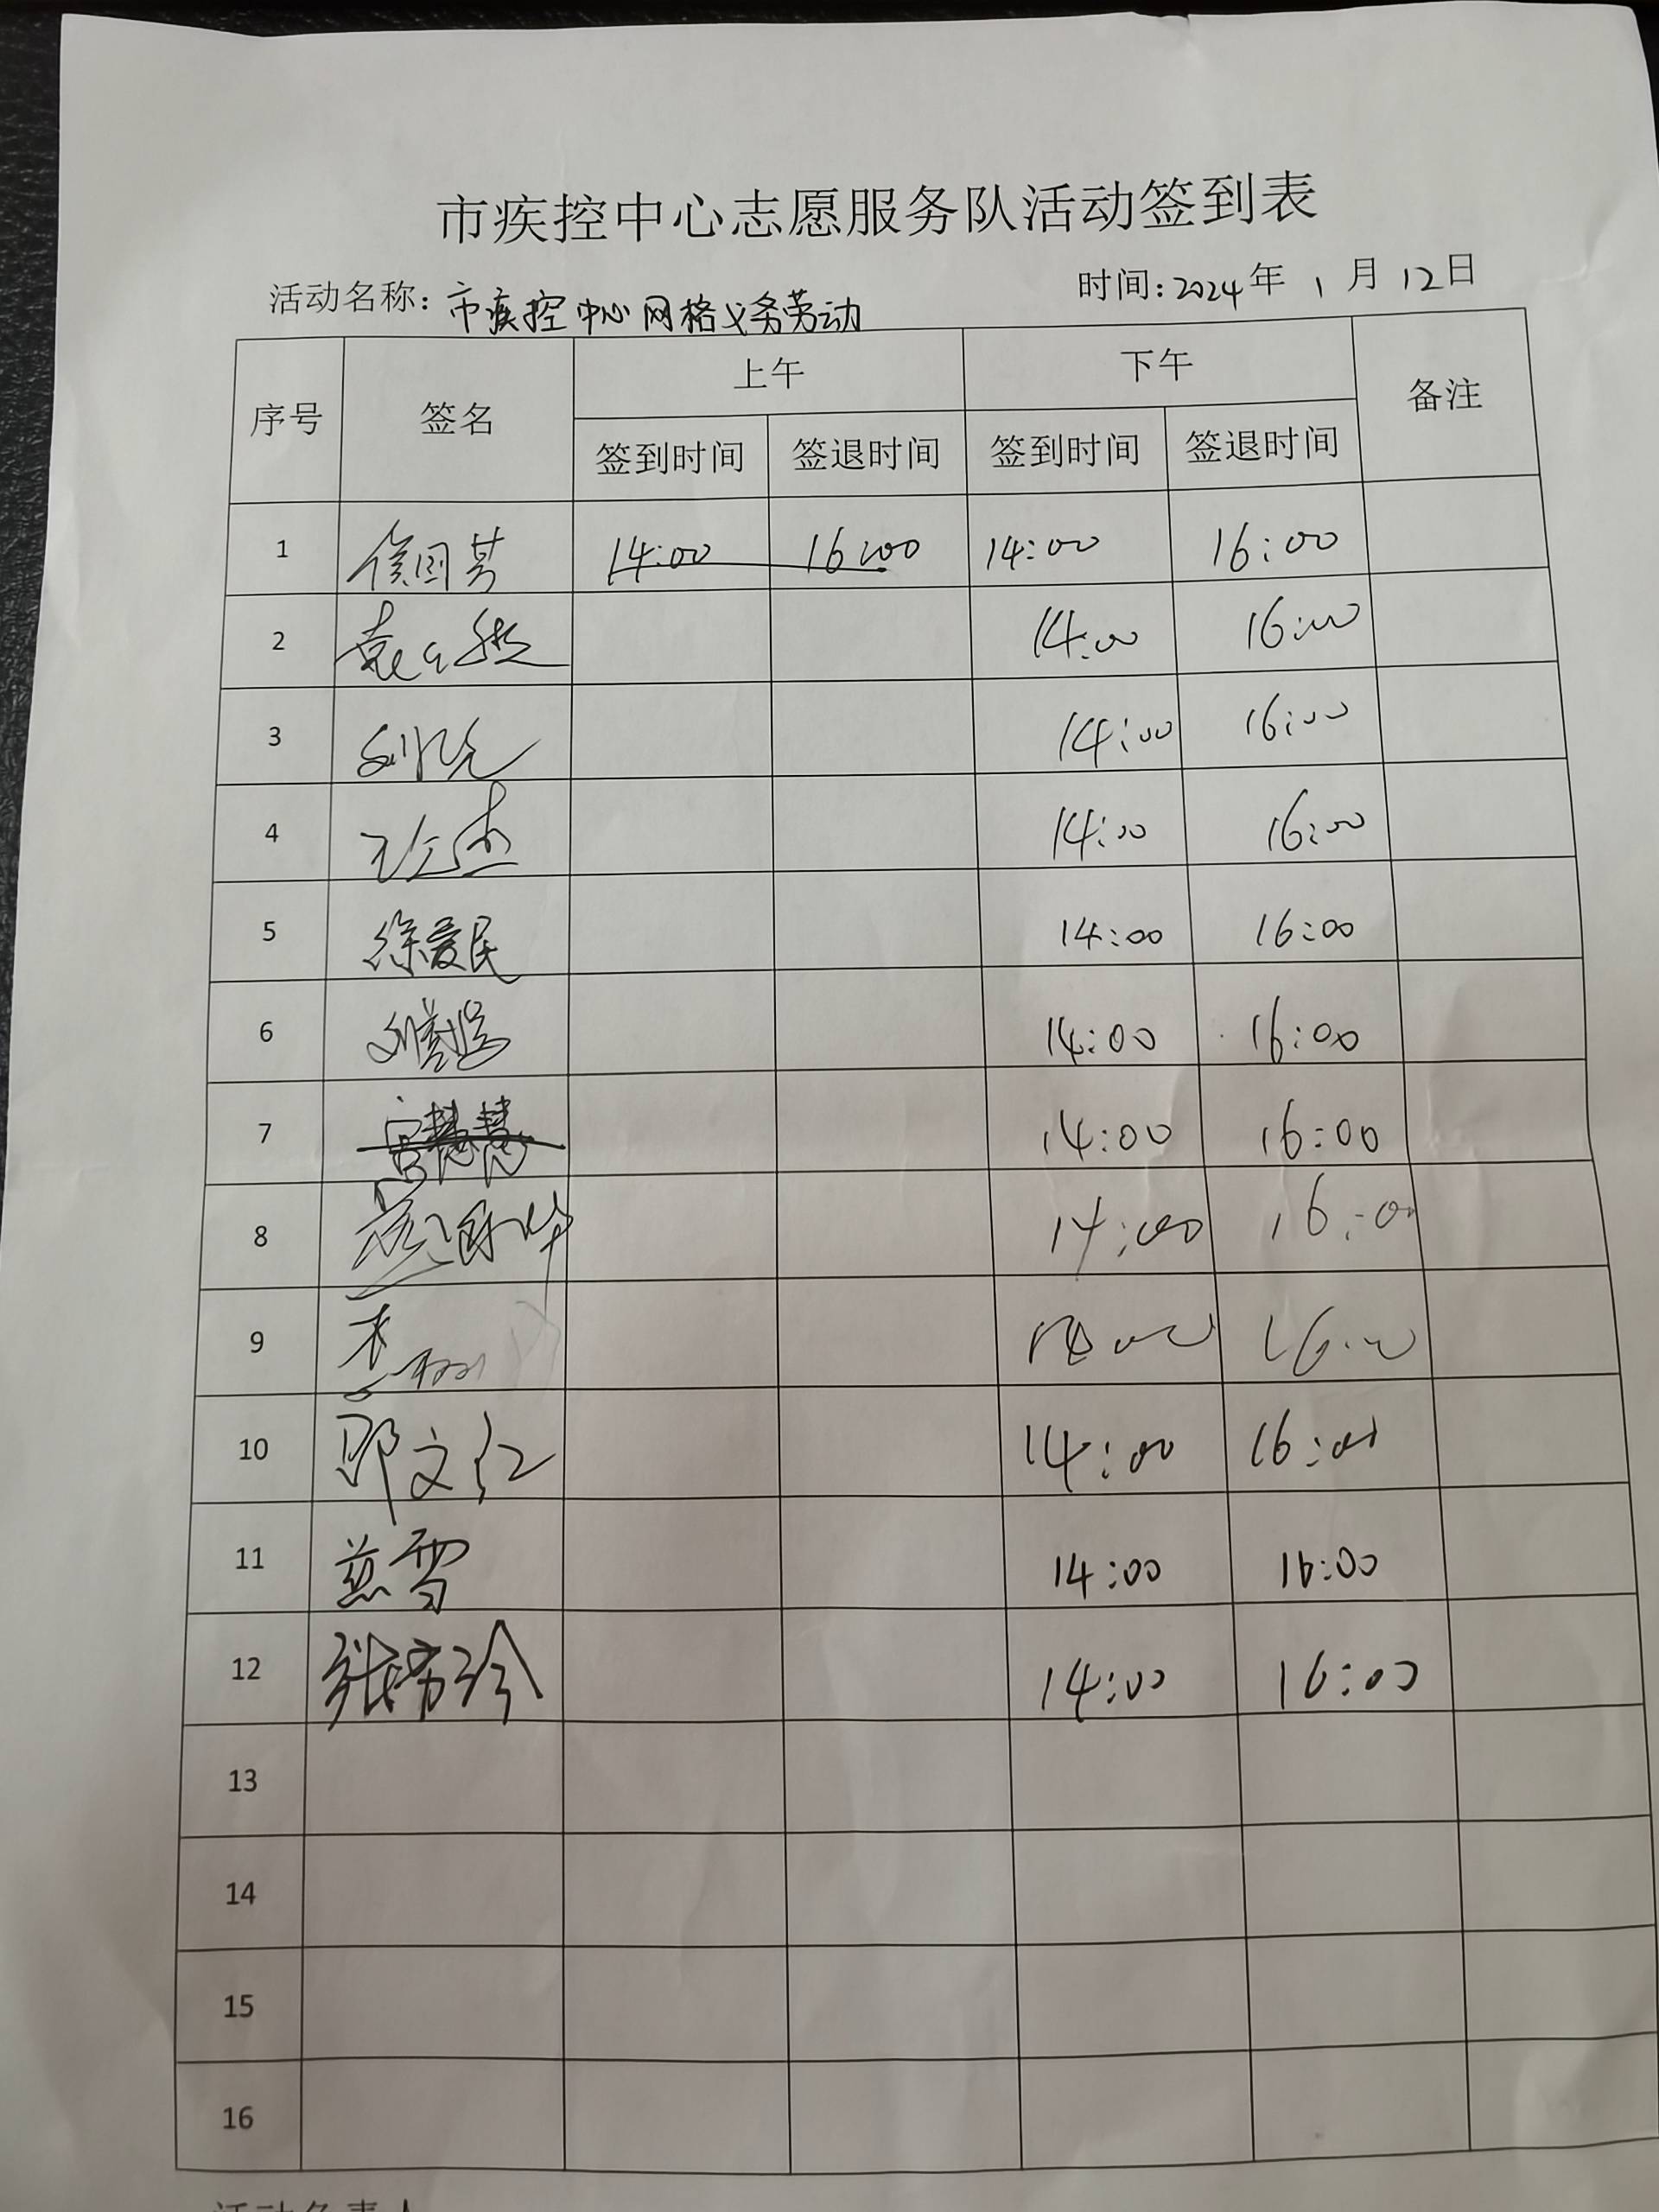 市疾控中心志愿服务队活动签到表
活动名称：市疾控中心网格义务劳动 时间：2024年1月12日
序号 签名 上午 下午 备注
签到时间 签退时间 签到时间 签退时间
1 侯国芳 14:00 16:00 14:00 16:00
2 14:00 16:00
3 14:00 16:00
4 14:00 16:00
5 徐爱民 14:00 16:00
6 14:00 16:00
7 宫慧慧 14:00 16:00
8 14:00 16:00
9 16:00
10 邓文仁 14:00 16:00
11 燕雪 14:00 16:00
12 张芳玲 14:00 16:00
13
14
15
16
活动负责人